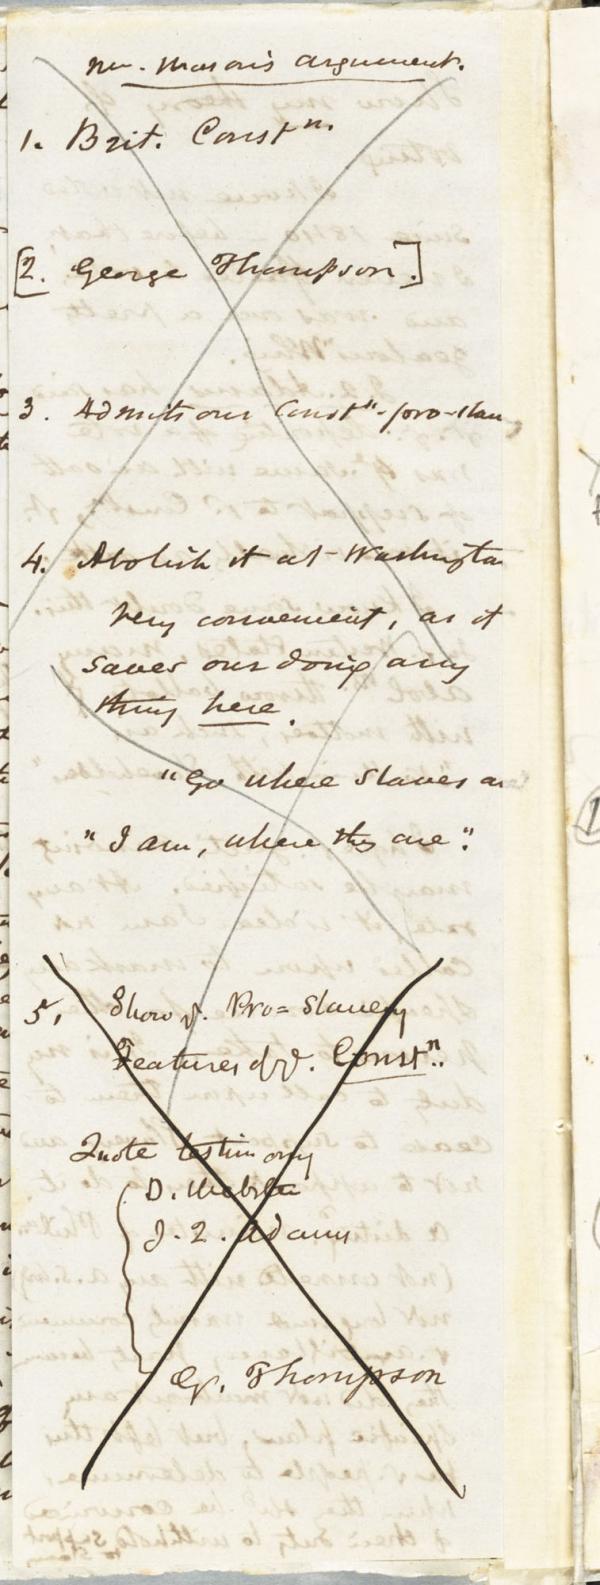 Mr. Mason's argument.
1. Brit. Constn.
[2. George Thompson.]
3. Admits our Constn-pro-slav
4. Abolish it at Washington
Very convenient, as it
saves our doing any
thing here.
"Go where slaves are
"I am, where they are".
5. Show ye. Pro=Slavery
Features of ye. Constn..
Quote testimony
D. Webster
J. Q. Adams
G. Thompson